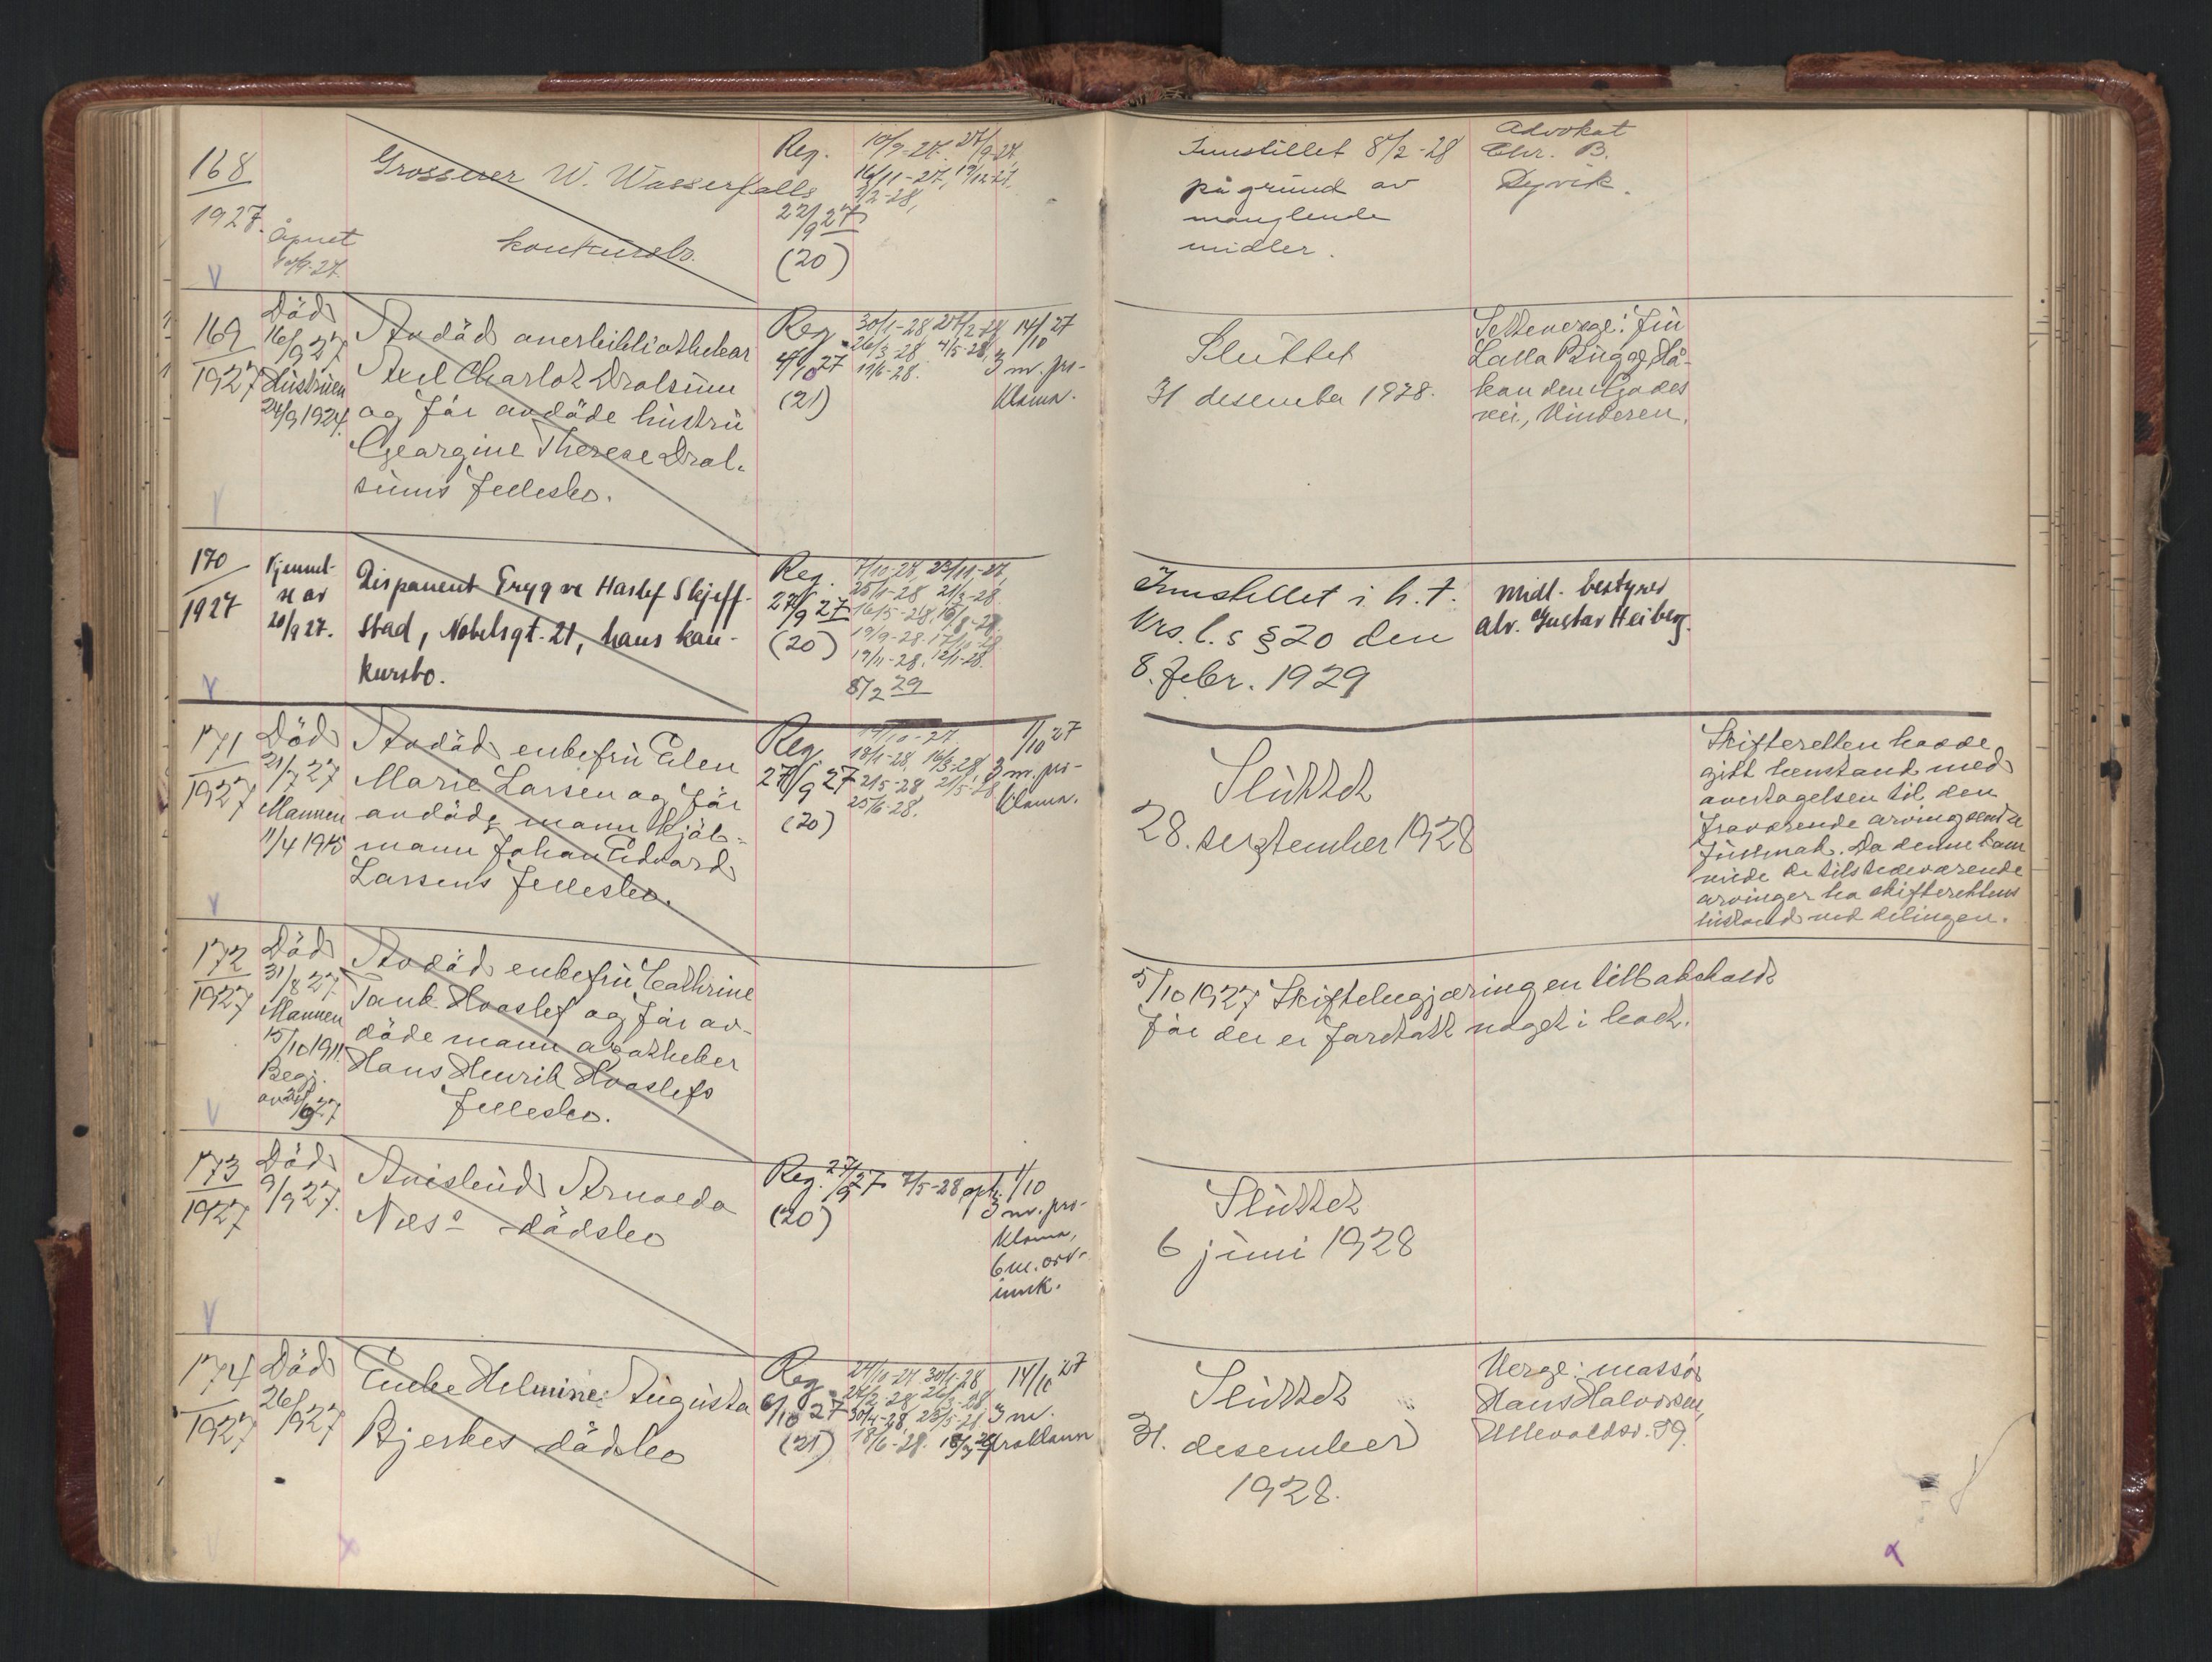 168
1927.
Åpnet
Grosserer W. Wasserfalls
konkursbo.
Reg.
22/9 27
(20)
16/11-27,
2/2-28,
Innstillet 8/2-28
på grund av
manglende
midler.
Advokat
Chr. B.
Dyvik.
169
1927
Död
16/9 27
Hustruen
24/9 1924.
Avdöd overbibliothekar
Axel Charlot Drolsum
og för avdöde hustru
Georgine Therese Drol-
sums fellesbo.
Reg.
4/10 27
(21)
30/1-28 27/2-28
26/3-28 4/5-28,
11/6-28.
14/10 27
3 m. pro-
klama.
Sluttet
31 desember 1928.
Setteverge: Frk
Lalla Bugge, Hå-
kon den Godes
vei, Vinderen.
170
1927
Kjennel-
se av
20/9 27.
Disponent Trygve Haslef Skjeff-
stad, Nobelsgt. 21, hans kon-
kursbo.
Reg.
27/9 27
(20)
7/10-27, 23/11-27,
25/1-28 21/3-28
16/5-28,
19/9-28. 17/10-28
19/11-28. 12/1-28.
8/2 29
Innstillet i h. t.
krs. l. s § 20 den
8. febr. 1929
Midl. bestyrer
adv. Gustav Heiberg.
171
1927
Död
21/7 27
Mannen
11/4 1915
Avdöd enkefru Elen
Marie Larsen og för
avdöde mann skjöl-
mann Johan Edvard
Larsens fellesbo.
Reg.
27/9 27
(20)
18/1-28, 16/3-28,
21/5-28 21/5-28
25/6-28.
1/10 27
3 m. pro-
klama.
Sluttet
28. september 1928
Skifteretten hadde
gitt henstand med
overtagelsen til den
fraværende arving sendte
fullmakt. Da denne kom
vilde de tilstedeværende
arvinger ha skifterettens
bistand ved delingen.
172
1927
Död
31/8 27.
Mannen
15/10 1911.
Begj.
Avdöd enkefru Cathrine
Tank Hvoslef og för av-
döde mann apotheker
Hans Henrik Hvoslefs
fellesbo.
5/10 1927 Skiftebegjæringen tilbakekaldt
för der er foretatt noget i boet.
173
1927
Död
9/9 27.
Avislbud Arnolda
Næss dödsbo
Reg. 27/9 27
(20)
7/5-28 oph.
1/10
3 m. pro-
klama,
6 m. arv-
innk.
Sluttet
6 juni 1928
174
1927
Död
26/9 27
Enke Helmine Augusta
Bjerkes dödsbo
Reg.
6/10 27
(21)
24/10-27. 30/1-28
27/2-28 26/3-28
30/4-28, 23/5-28
18/6-28.
14/10 27
3 m.
proklama
Sluttet
31. desember
1928.
Verge: massör
Hans Halvorsen,
Ullevoldsv. 59.